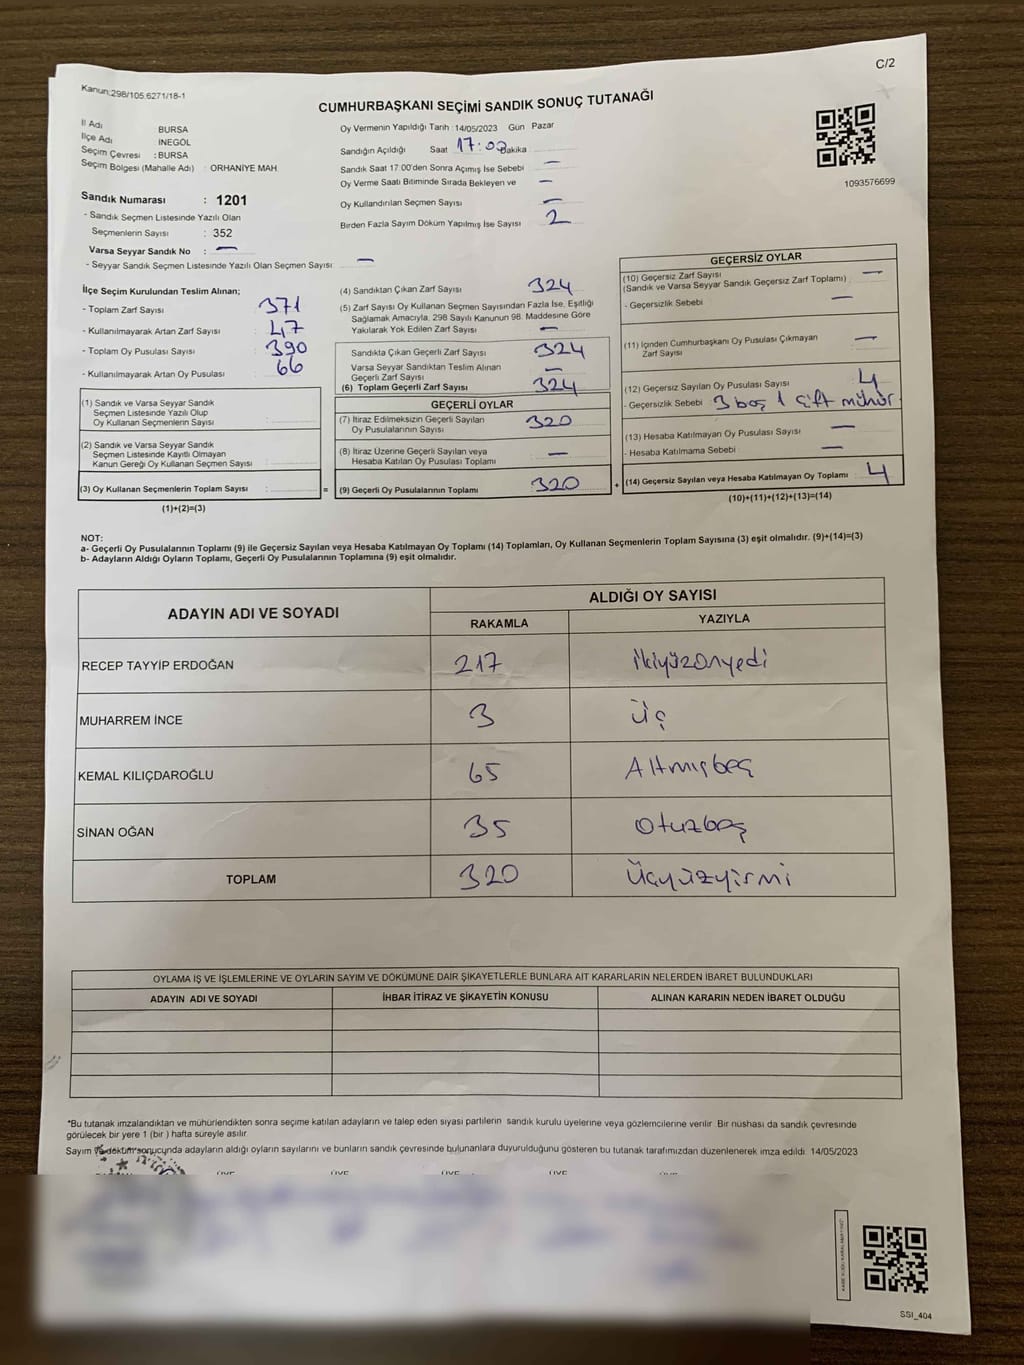 C/2
Kanun:298/105.6271/18-1
CUMHURBAŞKANI SEÇİMİ SANDIK SONUÇ TUTANAĞI
İl Adı BURSA
İlçe Adı İNEGÖL
Seçim Çevresi : BURSA
Seçim Bölgesi (Mahalle Adı) : ORHANİYE MAH
Oy Vermenin Yapıldığı Tarih :14/05/2023 Gün Pazar
Sandığın Açıldığı Saat 17:02 Dakika
Sandık Saat 17:00'den Sonra Açılmış İse Sebebi —
Oy Verme Saati Bitiminde Sırada Bekleyen ve —
Oy Kullandırılan Seçmen Sayısı —
Birden Fazla Sayım Döküm Yapılmış İse Sayısı 2
1093576699
Sandık Numarası : 1201
- Sandık Seçmen Listesinde Yazılı Olan
Seçmenlerin Sayısı : 352
Varsa Seyyar Sandık No : —
- Seyyar Sandık Seçmen Listesinde Yazılı Olan Seçmen Sayısı: —
İlçe Seçim Kurulundan Teslim Alınan;
- Toplam Zarf Sayısı : 371
- Kullanılmayarak Artan Zarf Sayısı : 47
- Toplam Oy Pusulası Sayısı : 390
- Kullanılmayarak Artan Oy Pusulası : 66
(1) Sandık ve Varsa Seyyar Sandık
Seçmen Listesinde Yazılı Olup
Oy Kullanan Seçmenlerin Sayısı :
(2) Sandık ve Varsa Seyyar Sandık
Seçmen Listesinde Kayıtlı Olmayan
Kanun Gereği Oy Kullanan Seçmen Sayısı :
(3) Oy Kullanan Seçmenlerin Toplam Sayısı : =
(1)+(2)=(3)
(4) Sandıktan Çıkan Zarf Sayısı 324
(5) Zarf Sayısı Oy Kullanan Seçmen Sayısından Fazla İse, Eşitliği
Sağlamak Amacıyla, 298 Sayılı Kanunun 98. Maddesine Göre
Yakılarak Yok Edilen Zarf Sayısı —
Sandıkta Çıkan Geçerli Zarf Sayısı 324
Varsa Seyyar Sandıktan Teslim Alınan
Geçerli Zarf Sayısı —
(6) Toplam Geçerli Zarf Sayısı 324
GEÇERLİ OYLAR
(7) İtiraz Edilmeksizin Geçerli Sayılan
Oy Pusulalarının Sayısı 320
(8) İtiraz Üzerine Geçerli Sayılan veya
Hesaba Katılan Oy Pusulası Toplamı —
(9) Geçerli Oy Pusulalarının Toplamı 320 +
GEÇERSİZ OYLAR
(10) Geçersiz Zarf Sayısı —
(Sandık ve Varsa Seyyar Sandık Geçersiz Zarf Toplamı)
- Geçersizlik Sebebi —
(11) İçinden Cumhurbaşkanı Oy Pusulası Çıkmayan
Zarf Sayısı —
(12) Geçersiz Sayılan Oy Pusulası Sayısı 4
- Geçersizlik Sebebi 3 boş 1 çift mühür
(13) Hesaba Katılmayan Oy Pusulası Sayısı —
- Hesaba Katılmama Sebebi —
(14) Geçersiz Sayılan veya Hesaba Katılmayan Oy Toplamı 4
(10)+(11)+(12)+(13)=(14)
NOT:
a- Geçerli Oy Pusulalarının Toplamı (9) ile Geçersiz Sayılan veya Hesaba Katılmayan Oy Toplamı (14) Toplamları, Oy Kullanan Seçmenlerin Toplam Sayısına (3) eşit olmalıdır. (9)+(14)=(3)
b- Adayların Aldığı Oyların Toplamı, Geçerli Oy Pusulalarının Toplamına (9) eşit olmalıdır.
ADAYIN ADI VE SOYADI ALDIĞI OY SAYISI
RAKAMLA YAZIYLA
RECEP TAYYİP ERDOĞAN 217 ikiyüzonyedi
MUHARREM İNCE 3 üç
KEMAL KILIÇDAROĞLU 65 Altmışbeş
SİNAN OĞAN 35 Otuzbeş
TOPLAM 320 Üçyüzyirmi
OYLAMA İŞ VE İŞLEMLERİNE VE OYLARIN SAYIM VE DÖKÜMÜNE DAİR ŞİKAYETLERLE BUNLARA AİT KARARLARIN NELERDEN İBARET BULUNDUKLARI
ADAYIN ADI VE SOYADI İHBAR İTİRAZ VE ŞİKAYETİN KONUSU ALINAN KARARIN NEDEN İBARET OLDUĞU
*Bu tutanak imzalandıktan ve mühürlendikten sonra seçime katılan adayların ve talep eden siyasi partilerin sandık kurulu üyelerine veya gözlemcilerine verilir. Bir nüshası da sandık çevresinde
görülecek bir yere 1 (bir ) hafta süreyle asılır.
Sayım ve döküm sonucunda adayların aldığı oyların sayılarını ve bunların sandık çevresinde bulunanlara duyurulduğunu gösteren bu tutanak tarafımızdan düzenlenerek imza edildi. 14/05/2023
ÜYE ÜYE ÜYE ÜYE
SSI_404